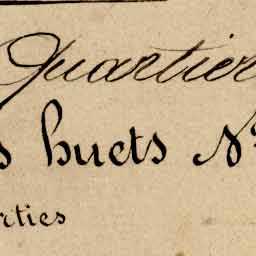 Quartier
s huets N°
rties